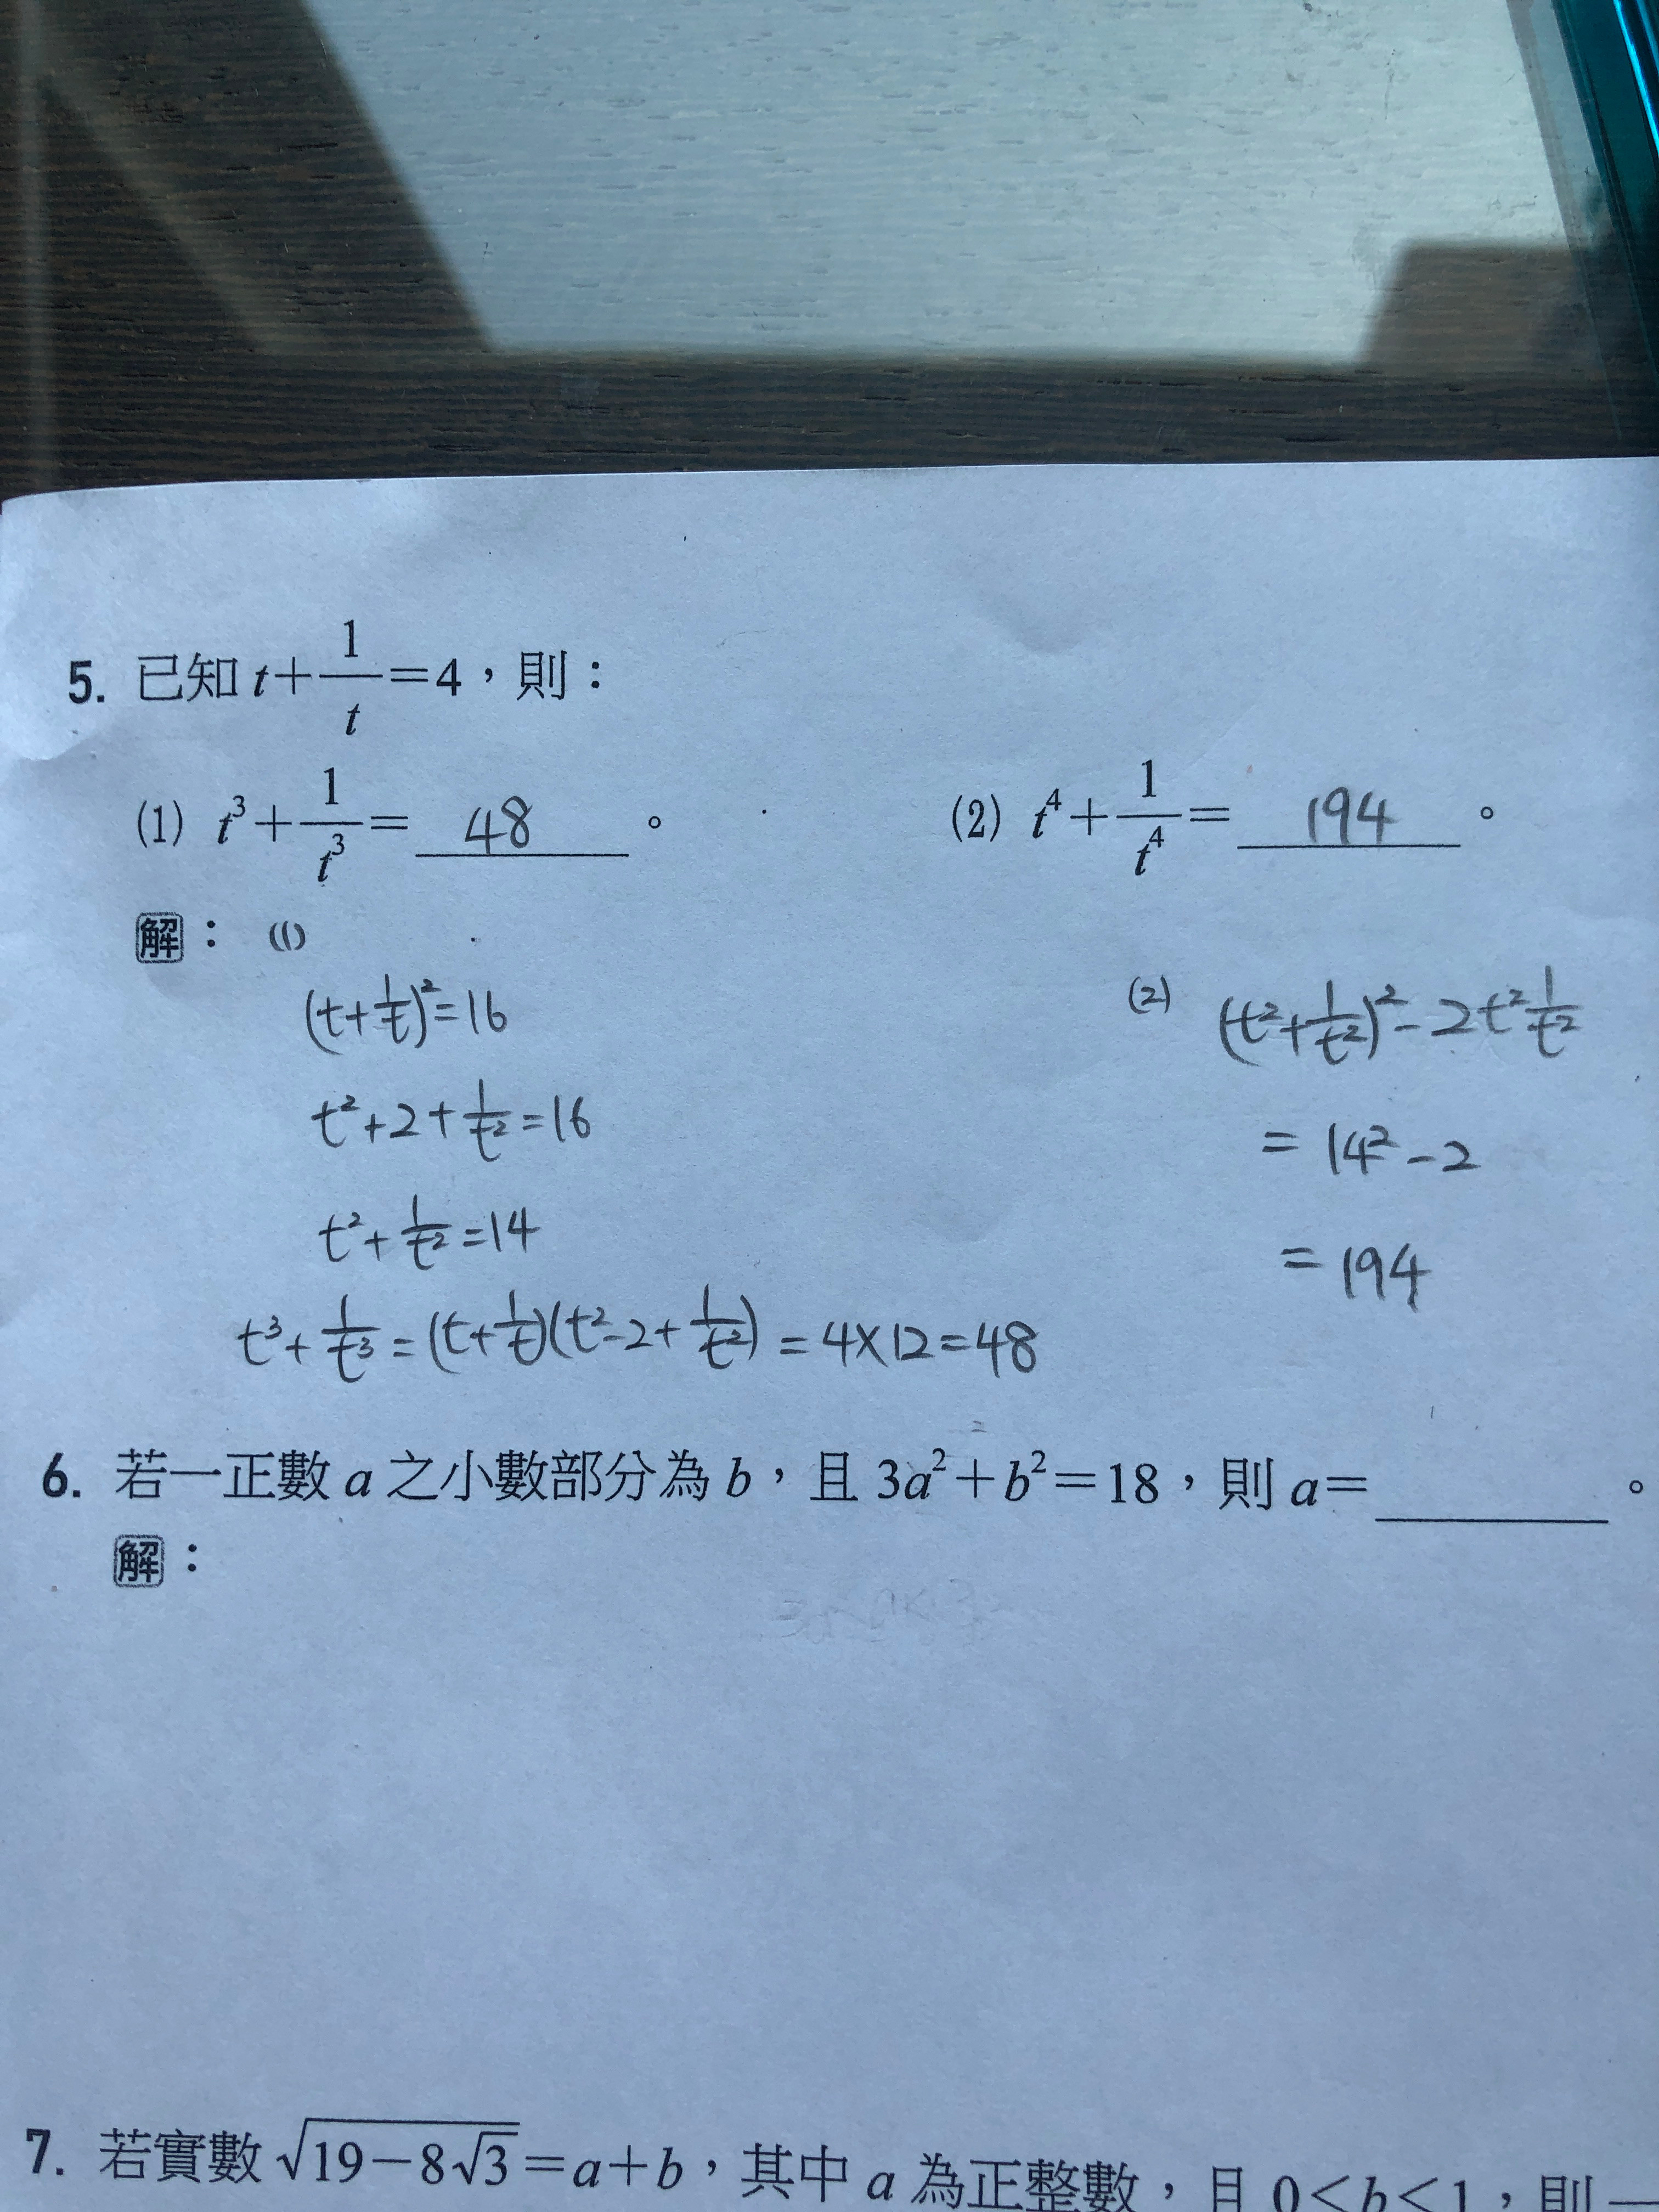 5. 已知 t+1/t=4，則：
(1) t³+1/t³= 48 。 (2) t⁴+1/t⁴= 194 。
解： (1)
(t+1/t)²=16
t²+2+1/t²=16
t²+1/t²=14
t³+1/t³=(t+1/t)(t²-2+1/t²)=4×12=48
(2) (t²+1/t²)²-2t²1/t²
= 14²-2
= 194
6. 若一正數 a 之小數部分為 b，且 3a²+b²=18，則 a=______。
解：
7. 若實數 √(19-8√3)=a+b，其中 a 為正整數，且 0<b<1，則